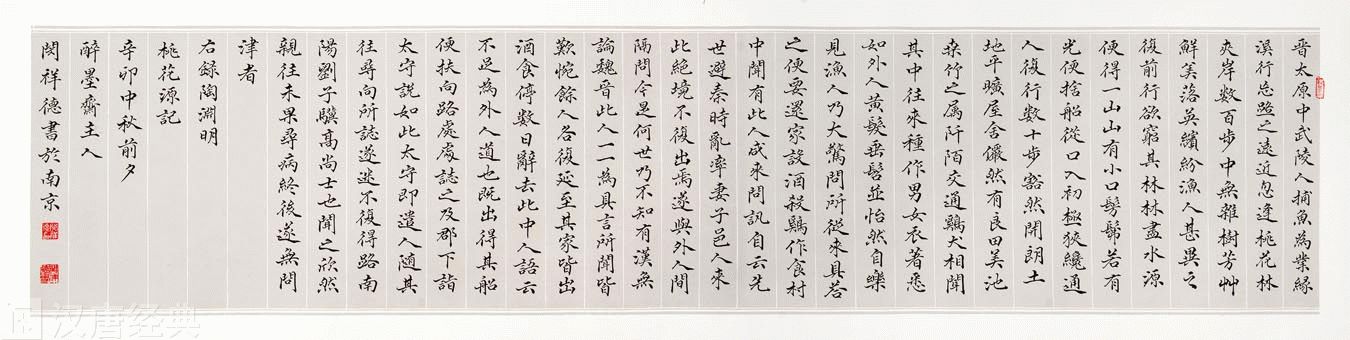 晋太原中武陵人捕魚為業緣
溪行忘路之遠近忽逢桃花林
夾岸數百步中無雜樹芳艸
鮮美落英繽紛漁人甚異之
復前行欲窮其林林盡水源
便得一山山有小口髣髴若有
光便捨船從口入初極狹纔通
人復行數十步豁然開朗土
地平曠屋舍儼然有良田美池
桑竹之属阡陌交通鷄犬相聞
其中往來種作男女衣著悉
如外人黃髮垂髫並怡然自樂
見漁人乃大驚問所從來具荅
之便要還家設酒殺鷄作食村
中聞有此人咸來問訊自云先
世避秦時亂率妻子邑人來
此絕境不復出焉遂與外人間
隔問今是何世乃不知有漢無
論魏晉此人一一為具言所聞皆
歎惋餘人各復延至其家皆出
酒食停數日辭去此中人語云
不足為外人道也既出得其船
便扶向路處處誌之及郡下詣
太守說如此太守即遣人随其
往尋向所誌遂迷不復得路南
陽劉子驥髙尚士也聞之欣然
親往未果尋病終後遂無問
津者
右錄陶淵明
桃花源記
辛卯中秋前夕
醉墨齋主人
閔祥德書於南京
汉唐经典